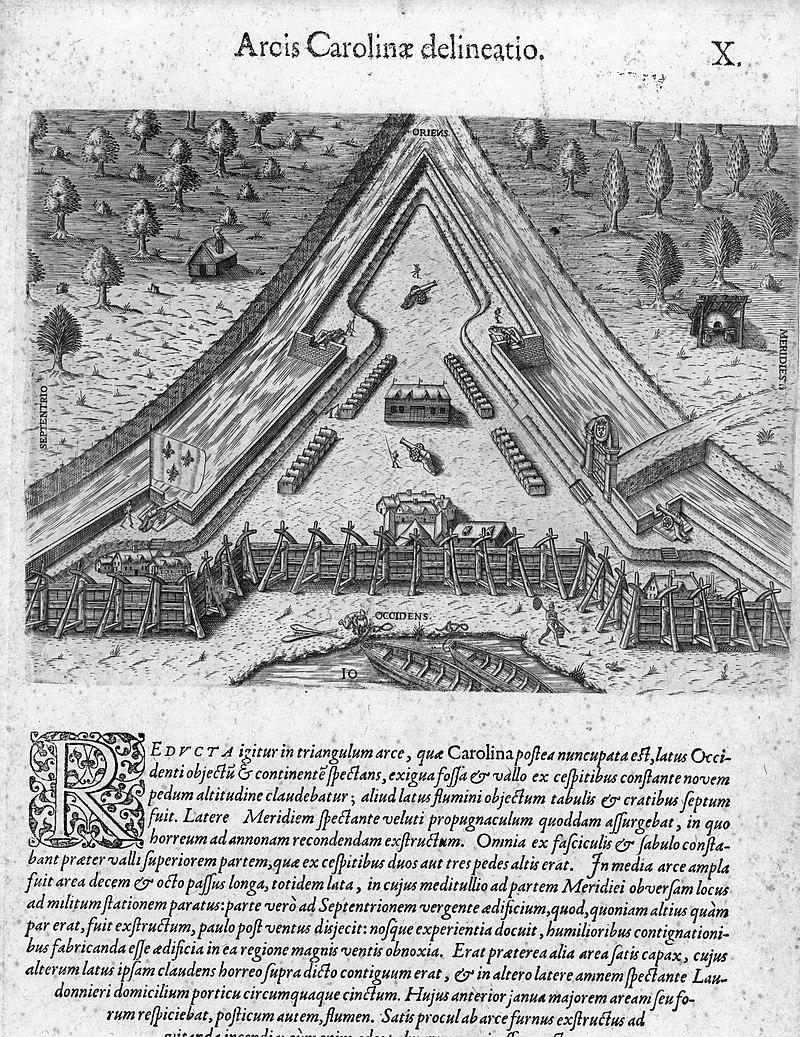 Arcis Carolinæ delineatio.
X.
ORIENS.
SEPTENTRIO
MERIDIES.
OCCIDENS.
10
REDVCTA igitur in triangulum arce, quæ Carolina postea nuncupata est, latus Occi-
denti objectũ & continentẽ spectans, exigua fossa & vallo ex cespitibus constante novem
pedum altitudine claudebatur; aliud latus flumini objectum tabulis & cratibus septum
fuit. Latere Meridiem spectante veluti propugnaculum quoddam assurgebat, in quo
horreum ad annonam recondendam exstructum. Omnia ex fasciculis & sabulo consta-
bant præter valli superiorem partem, quæ ex cespitibus duos aut tres pedes altis erat. In media arce ampla
fuit area decem & octo passus longa, totidem lata, in cujus meditullio ad partem Meridiei obversam locus
ad militum stationem paratus: parte verò ad Septentrionem vergente ædificium, quod, quoniam altius quàm
par erat, fuit exstructum, paulo post ventus disjecit: nosque experientia docuit, humilioribus contignationi-
bus fabricanda esse ædificia in ea regione magnis ventis obnoxia. Erat præterea alia area satis capax, cujus
alterum latus ipsam claudens horreo supra dicto contiguum erat, & in altero latere amnem spectante Lau-
donnieri domicilium porticu circumquaque cinctum. Hujus anterior janua majorem aream seu fo-
rum respiciebat, posticum autem, flumen. Satis procul ab arce furnus exstructus ad